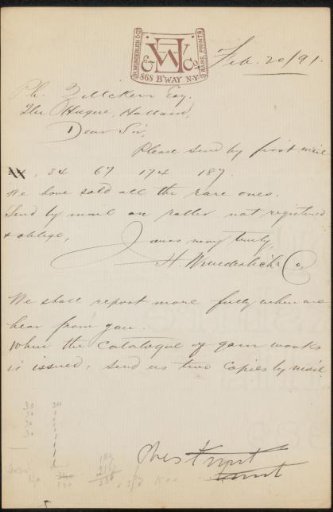 H. WUNDERLICH & CO
W
H & Co
868 B'WAY N.Y.
RARE PRINTS
Feb. 20/91.
Ph. Zilcken Esq.
The Hague, Holland,
Dear Sir,
Please send by first mail
34 67 174 187.
We have sold all the rare ones.
Send by mail on roller not registered
& oblige,
Yours very truly,
H Wunderlich & Co,
We shall report more fully when we
hear from you.
When the catalogue of your works
is issued, send us two copies by mail